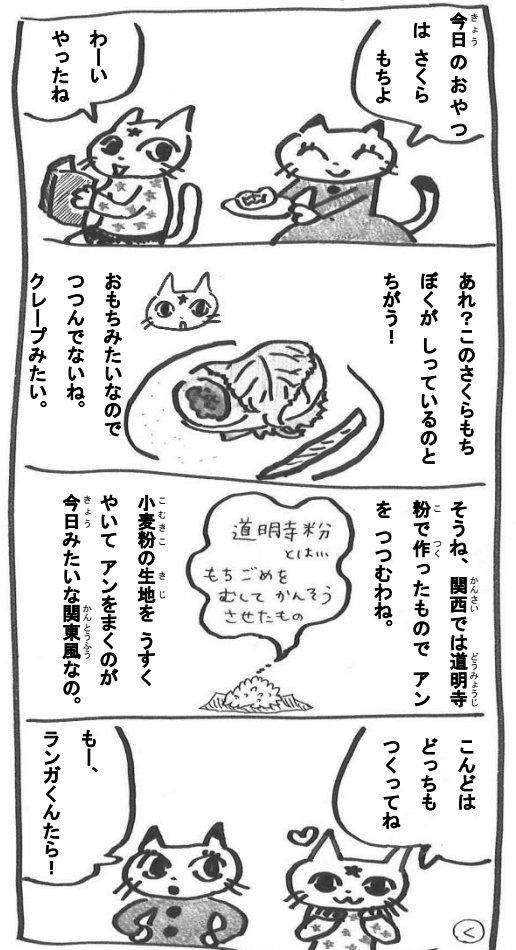 今日のおやつ
は さくら
もちよ
わーい
やったね
あれ？このさくらもち
ぼくが しっているのと
ちがう！
おもちみたいなので
つつんでないね。
クレープみたい。
そうね、関西では道明寺
粉で作ったもので アン
を つつむわね。
道明寺粉
とは…
もちごめを
むして かんそう
させたもの
小麦粉の生地を うすく
やいて アンをまくのが
今日みたいな関東風なの。
こんどは
どっちも
つくってね
もー、
ランガくんたら！
く